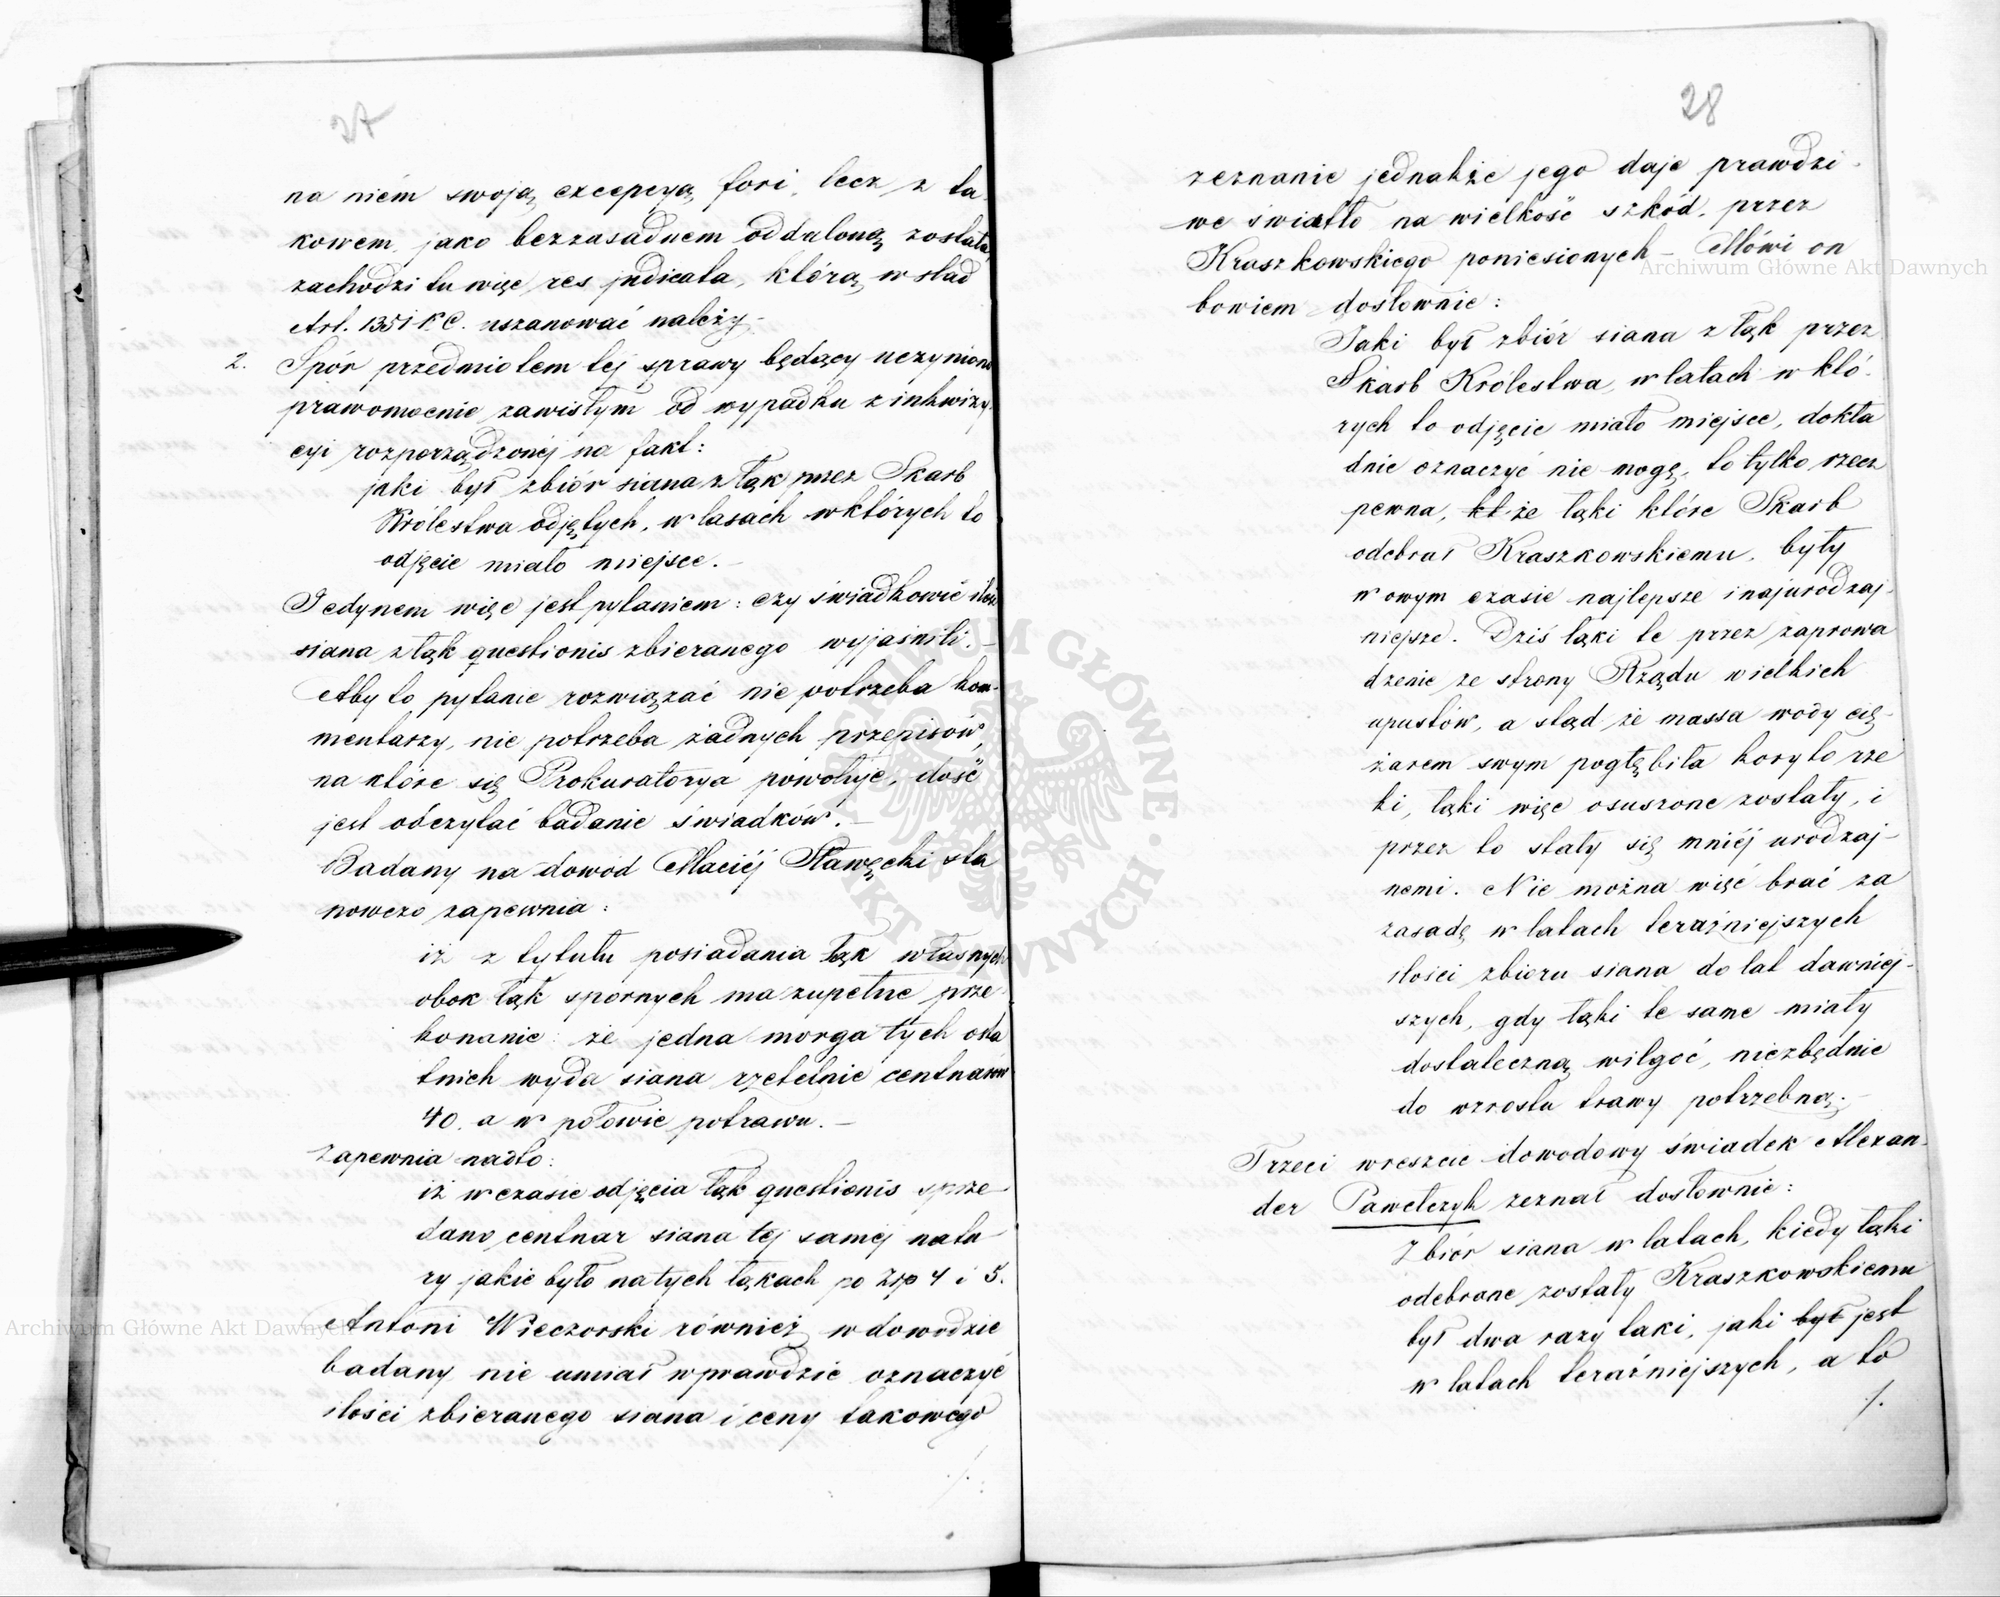 27
na niém swoją excepcyą fori, lecz z ta-
kowem, jako bezzasadnem oddaloną została,
zachodzi tu więc res judicata, którą w ślad
Art. 1351 K C. uszanować należy.
2. Spór przedmiotem tej sprawy będący uczyniono
prawomocnie zawisłym od wypadku z inkwizy-
cyi rozporządzonéj na fakt:
jaki był zbiór siana z łąk przez Skarb
Królestwa odjętych, w lasach w których to
odjęcie miało miejsce. –
Jedynem więc jest pytaniem: czy świadkowie ilość
siana z łąk questionis zbieranego wyjaśnili. –
Aby to pytanie rozwiązać nie potrzeba kom-
mentarzy, nie potrzeba żadnych przepisów,
na które się Prokuratorya powołuje, dość
jest odczytać badanie świadków. –
Badany na dowód Maciéj Sławęcki sta
nowczo zapewnia:
iż z tytułu posiadania łąk własnych
obok łąk spornych ma zupełne prze-
konanie: że jedna morga tych osta
tnich wyda siana rzetelnie centnarów
40. a w połowie potrawu. –
Zapewnia nadto:
iż w czasie odjęcia łąk questionis sprze-
dano centnar siana téj saméj natu-
ry jakie było na tych łąkach po Złp 4 i 5.
Antoni Wieczorski również w dowodzie
badany nie umiał wprawdzie oznaczyć
ilości zbieranego siana i ceny takowego
./.
28
zeznanie jednakże jego daje prawdzi-
we światło na wielkość szkód, przez
Kraszkowskiego poniesionych – Mówi on
bowiem dosłownie:
Jaki był zbiór siana z łąk przez
Skarb Królestwa, w latach w któ-
rych to odjęcie miało miejsce, dokła
dnie oznaczyć nie mogę, to tylko rzecz
pewna, kt że łąki które Skarb
odebrał Kraszkowskiemu, były
w owym czasie najlepsze i najurodzaj-
niejsze. Dziś łąki te przez zaprowa
dzenie ze strony Rządu wielkich
upustów, a stąd że massa wody cię-
żarem swym pogłębiła koryto rze
ki, łąki więc osuszone zostały, i
przez to stały się mniéj urodzaj-
nemi. Nie można więc brać za
zasadę w latach teraźniejszych
ilości zbioru siana do lat dawniej-
szych, gdy łąki te same miały
dostateczną wilgoć, niezbędnie
do wzrostu trawy potrzebną. –
Trzeci wreszcie dowodowy świadek Alexan-
der Pawełczyk zeznał dosłownie:
Zbiór siana w latach, kiedy łąki
odebrane zostały Kraszkowskiemu
był dwa razy taki, jaki był jest
w latach teraźniejszych, a to
./.
Archiwum Główne Akt Dawnych
Archiwum Główne Akt Dawnych
ARCHIWUM GŁÓWNE · AKT DAWNYCH ·